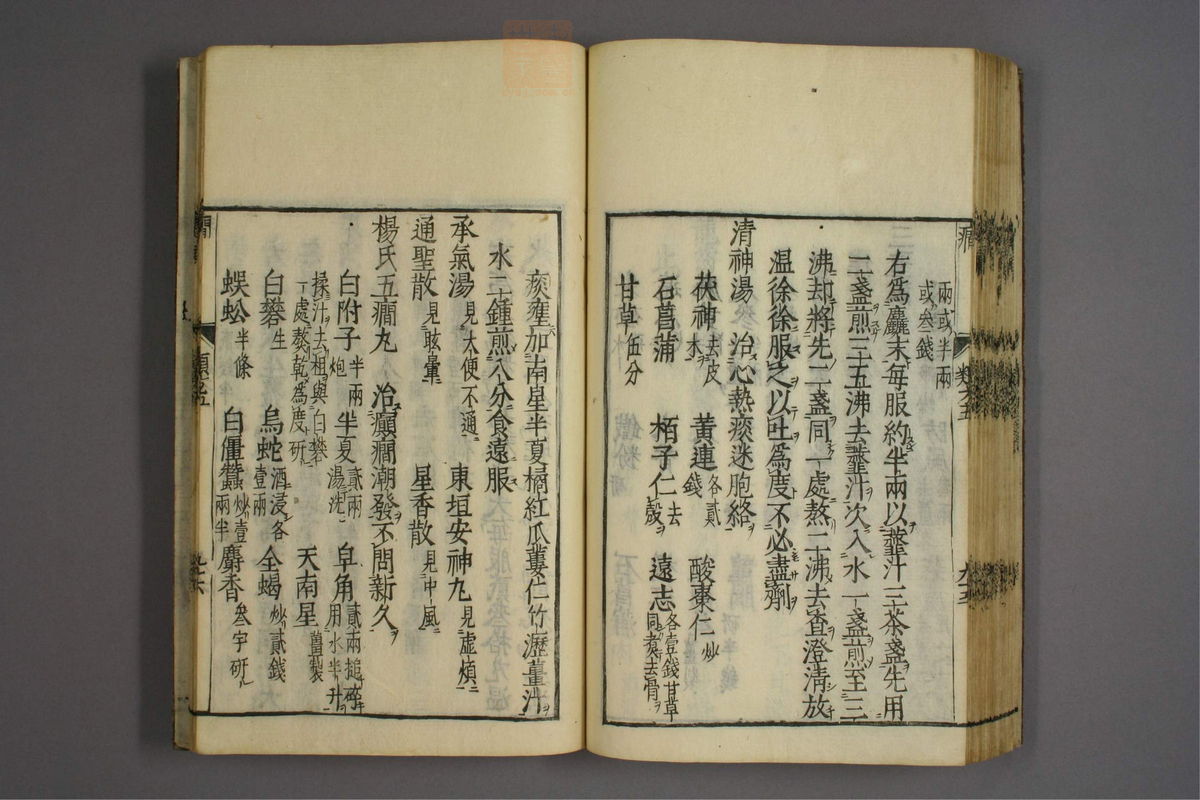 兩或半兩
或叁錢
右為麤末每服約半兩以虀汁三茶盞先用
二盞煎三五沸去虀汁次入水一盞煎至三
沸却將先二盞同一處熬二沸去査澄清放
温徐徐服之以吐為度不必盡劑
清神湯 治心熱痰迷胞絡
茯神去皮木 黄連各貳錢 酸棗仁炒
石菖蒲 栢子仁去殻 遠志各壹錢甘草同煮去骨
甘草伍分
痰壅加南星半夏橘紅瓜蔞仁竹瀝薑汁
水二鍾煎八分食遠服
承氣湯見大便不通 東垣安神丸見虚煩
通聖散見眩暈 星香散見中風
楊氏五癇丸 治癲癇潮發不問新久
白附子半兩炮 半夏貳兩湯洗 皁角貳兩搥碎用水半升
揉汁去粗與白礬一處熬乾為度研 天南星薑製
白礬生 烏蛇酒浸各壹兩 全蝎炒貳錢
蜈蚣半條 白僵蠶炒壹兩半 麝香叁字研